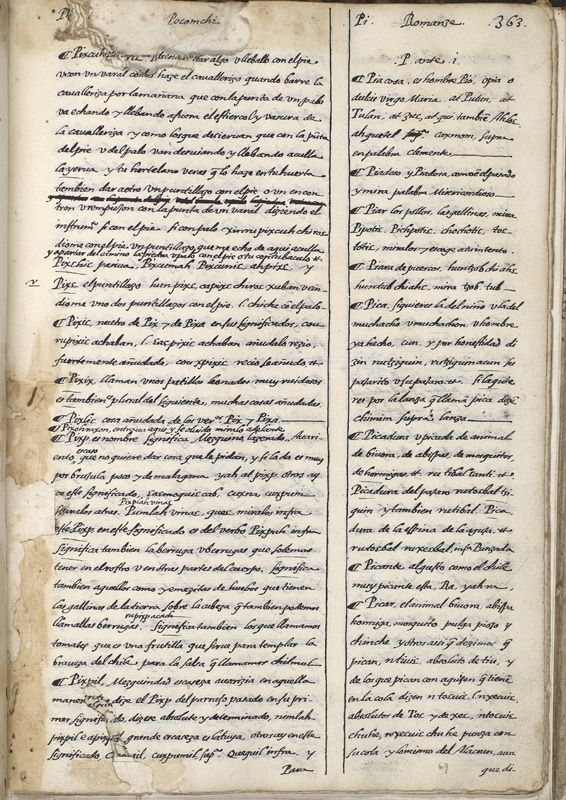 Pocomchi.
¶ Pixcuh dar algo o lleballo con el pie
v con vn varal como haze el cavallerizo quando barre la
cavalleriza por la mañana que con la punta de vn palo
va echando y llebando afuera el estiercol y vasura de
la cavalleriza y como los que desiervan que con la püta
del pie v del palo van derviando y llebando aculla
la yerva y tu hortelano veras q̃ lo haze en tu huerta
tambien dar a otro vn puntillazo con el pie o vn encon
tron v rempuson con la punta de vn varal diziendo el
instrumᵒ si con el pie si con palo xinru pixcuh chi roc
diome con el pie vn puntillazo que me echo de aqui aculla
y apartar del camino la piedra v palo con el pie o tu contibaculo &.
Pixchic parcua, Pixcumah Pixcumic, ahpixc, y
v
Pixc el puntillazo hun pixc, capixc chiroc xuban vein
diome vno dos puntillazos con el pie. l. chi che cõ el palo
¶ Pixic, neutro de Pix y de Pixa en sus significados, cou
rupixic achaban, l. cac pixic achaban añudalo rezio,
fuertemente añudado, cou xpixic recio se añudo, &
¶ Pixix, llaman vnos patillos bonados muy ruidosos
es tambien el plural del siguiente, muchas cosas añudadas.
¶ Pixlic cosa añudada de los verᵒˢ Pix, y Pixa.
¶ Pixp es nombre significa Mezquino lazerado, Avari
ento escaso que no quiere dar cosa que le pidan, y si la da es muy
por brujula poco y de mala gana yah at pixp. otros ay
en este significado, cacmoguic cab, cuxna cuxpum
Pixpilis vinac
Pimlah vinac, guec miralos infra
este Pixp en este significado es del verbo Pixpuh infra
significa tambien la berruga v berrugas que solemos
tener en el rostro v en otras partes del cuerpo. significa
tambien aquellos como yemezitas de huebos que tienen
las gallinas de la tierra sobre la cabeza q̃ tambien podemos
llamallas berrugas. significa tambien los que llamamos
tomates que es vna frutilla que sirve para templar la
braveza del chile para la salsa q̃ llamamos chilmol.
¶ Pixpil, Mezquindad escaseza avarizia en aquella
manera dize el Pixp del parrafo pasado en su pri
mer significado, dizese absoluto y determinado, nimlah
pixpil a pixpil grande escaseza es la tuya, otros ay en este
significado cuxpumil supᵃ. Queguil infra y
Para

Pi. Romanze. 363.
P. ante .i.
¶ Pia cosa, es hombre Pio, o pia o
dulcis virgo Maria. at Pubin, at
Tulan, at que, at qui tambiẽ At loc,
ah quetel coxmom, supra
en palabra clemente.
¶ Piadoso y Piadosa, como en el pasado
y mira palabra Misericordioso.
¶ Piar los pollos, las gallinas, mira
Pipotic. Pichpotic, chochotic, toc-
totic, miralos y trae a tu intento.
¶ Piara de puercos, huntzob chi ahc
hun tub chi ahc, mira tzob tub
¶ Pica. si quieres la del niño v la del
muchacho v muchachon v hombre
ya hecho, cun, y por honestidad di
zin rutziguin, rutziquin acun su
pajarito v su pajaro. &. si la quie
res por la lanza q̃ llamã pica dize
chimim supra lanza
¶ Picadura v picado de animal
de bivora, de abispas, de mosquitos,
de hormigas. &. ru tibal canti. &.
Picadura del pajaro rutosbal tzi
quin y tambien ru tibal. Pica
dura de la espina de la aguja. &.
rutosbal ruxecbal, infᵃ Punzada
¶ Picante al gusto como el chile
muy picante esta, Ra, yah ra.
¶ Picar, el animal bivora, abispa
hormiga, mosquito pulga piojo y
chinche y otros assi q̃ dezimos q̃
pican, n tiuic, absoluto de tiu, y
de los que pican con aguijon q̃ tiene
en la cola dizen n tocuic, l. nxecuic,
absolutos de Toc, y de xec, ntocuic
chu he, nxecuic chu he punza con
su cola, y lo mismo del Alacran, aun
69 que di.